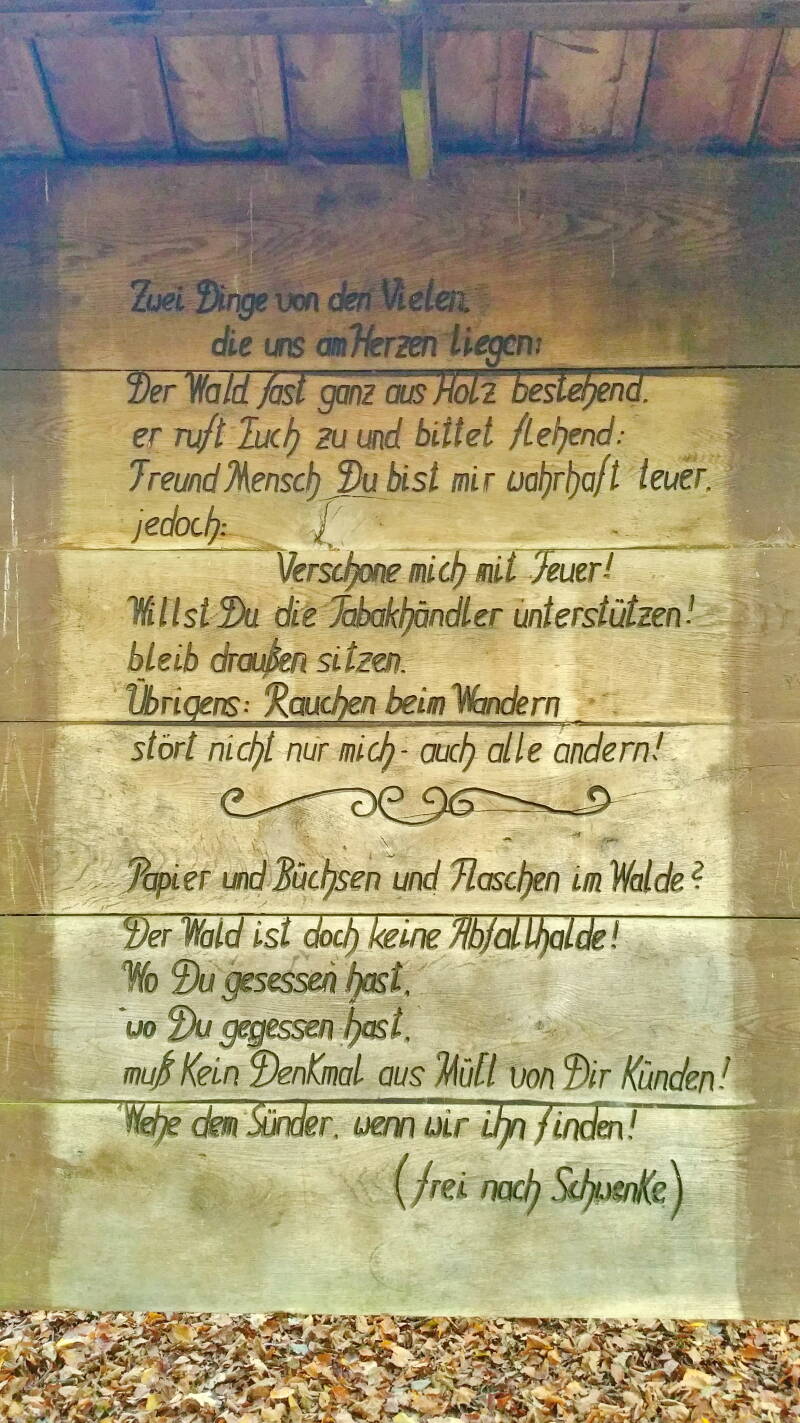 Zwei Dinge von den Vielen,
die uns am Herzen liegen:
Der Wald fast ganz aus Holz bestehend,
er ruft Euch zu und bittet flehend:
Freund Mensch Du bist mir wahrhaft teuer,
jedoch:
Verschone mich mit Feuer!
Willst Du die Tabakhändler unterstützen!
bleib draußen sitzen.
Übrigens: Rauchen beim Wandern
stört nicht nur mich - auch alle andern!
Papier und Büchsen und Flaschen im Walde?
Der Wald ist doch keine Abfallhalde!
Wo Du gesessen hast,
wo Du gegessen hast,
muß Kein Denkmal aus Müll von Dir Künden!
Wehe dem Sünder, wenn wir ihn finden!
(frei nach Schwenke)